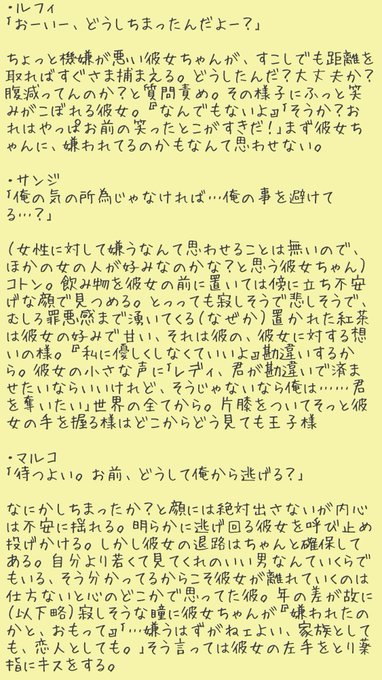 ・ルフィ
「おーいー、どうしちまったんだよー？」
ちょっと機嫌が悪い彼女ちゃんが、すこしでも距離を
取ればすぐさま捕まえる。どうしたんだ？大丈夫か？
腹減ってんのか？と質問責め。その様子にふっと笑
みがこぼれる彼女。『なんでもないよ』「そうか？お
れはやっぱお前の笑ったとこがすきだ！」まず彼女ち
ゃんに、嫌われてるのかもなんて思わせない。
・サンジ
「俺の気の所為じゃなければ…俺の事を避けて
る…？」
（女性に対して嫌うなんて思わせることは無いので、
ほかの女の人が好みなのかな？と思う彼女ちゃん）
コトン。飲み物を彼女の前に置いては傍に立ち不安
げな顔で見つめる。とっっても寂しそうで悲しそうで、
むしろ罪悪感まで湧いてくる（なぜか）置かれた紅茶
は彼女の好みで甘い、それは彼の、彼女に対する想
いの様。『私に優しくしなくていいよ』勘違いするか
ら。彼女の小さな声に「レディ、君が勘違いで済ま
せたいならいいけれど、そうじゃないなら俺は……君
を奪いたい」世界の全てから。片膝をついてそっと彼
女の手を握る様はどこからどう見ても王子様
・マルコ
「待つよい。お前、どうして俺から逃げる？」
なにかしちまったか？と顔には絶対出さないが内心
は不安に揺れる。明らかに逃げ回る彼女を呼び止め
投げかける。しかし彼女の退路はちゃんと確保して
ある。自分より若くて見てくれのいい男なんていくらで
もいる、そう分かってるからこそ彼女が離れていくのは
仕方ないと心のどこかで思ってた彼。年の差が故に
（以下略）寂しそうな瞳に彼女ちゃんが『嫌われたの
かと、おもって』「…嫌うはずがねェよい、家族として
も、恋人としても。」そう言っては彼女の左手をとり薬
指にキスをする。